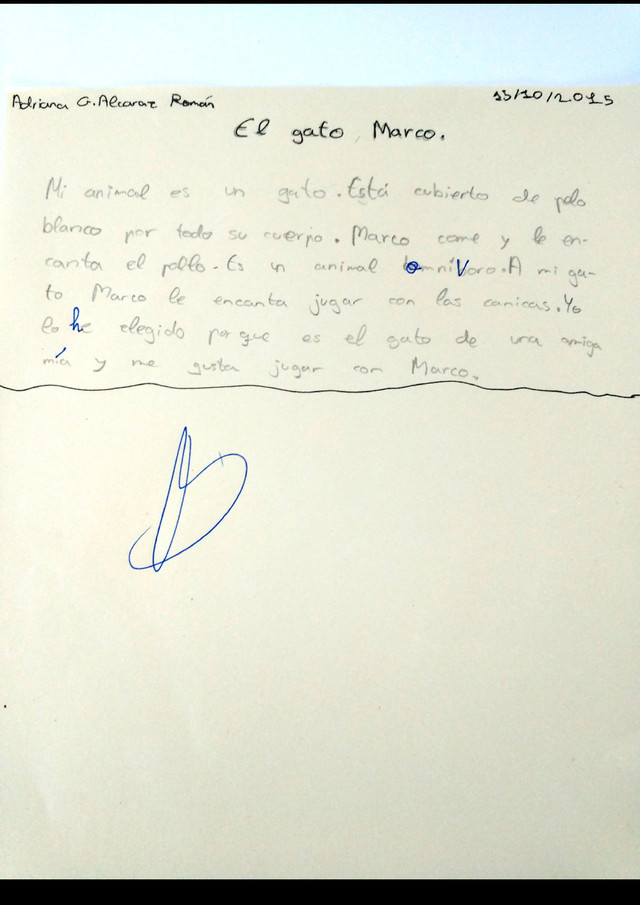 Adriana G. Alcaraz Román
13/10/2015
El gato Marco.
Mi animal es un gato. Está cubierto de pelo
blanco por todo su cuerpo. Marco come y le en-
canta el pollo. Es un animal omnívoro. A mi ga-
to Marco le encanta jugar con las canicas. Yo
lo he elegido porque es el gato de una amiga
mía y me gusta jugar con Marco.